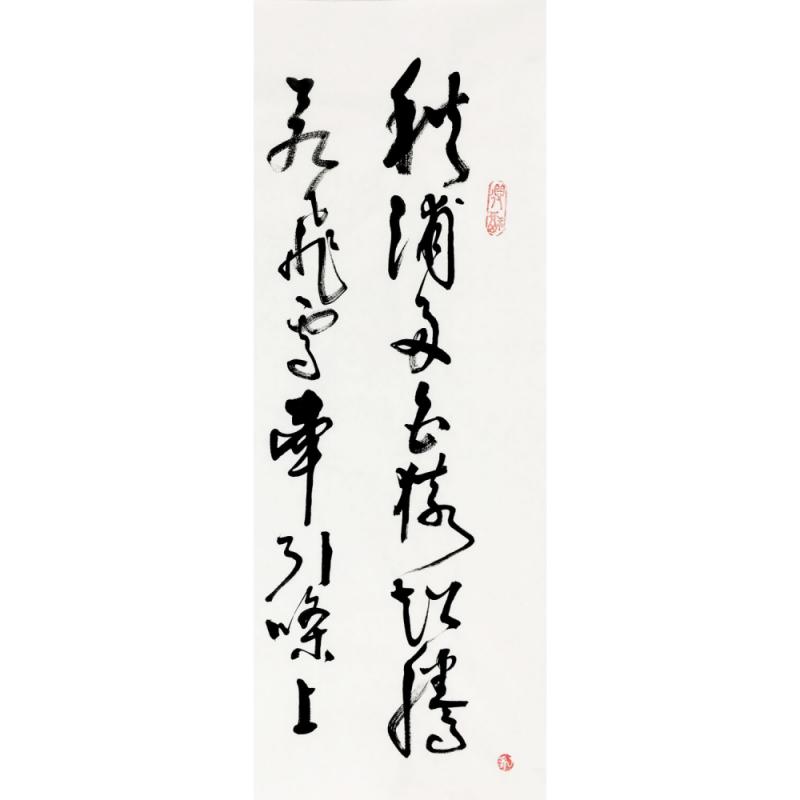 秋浦多白猿超腾
若飞雪牵引條上